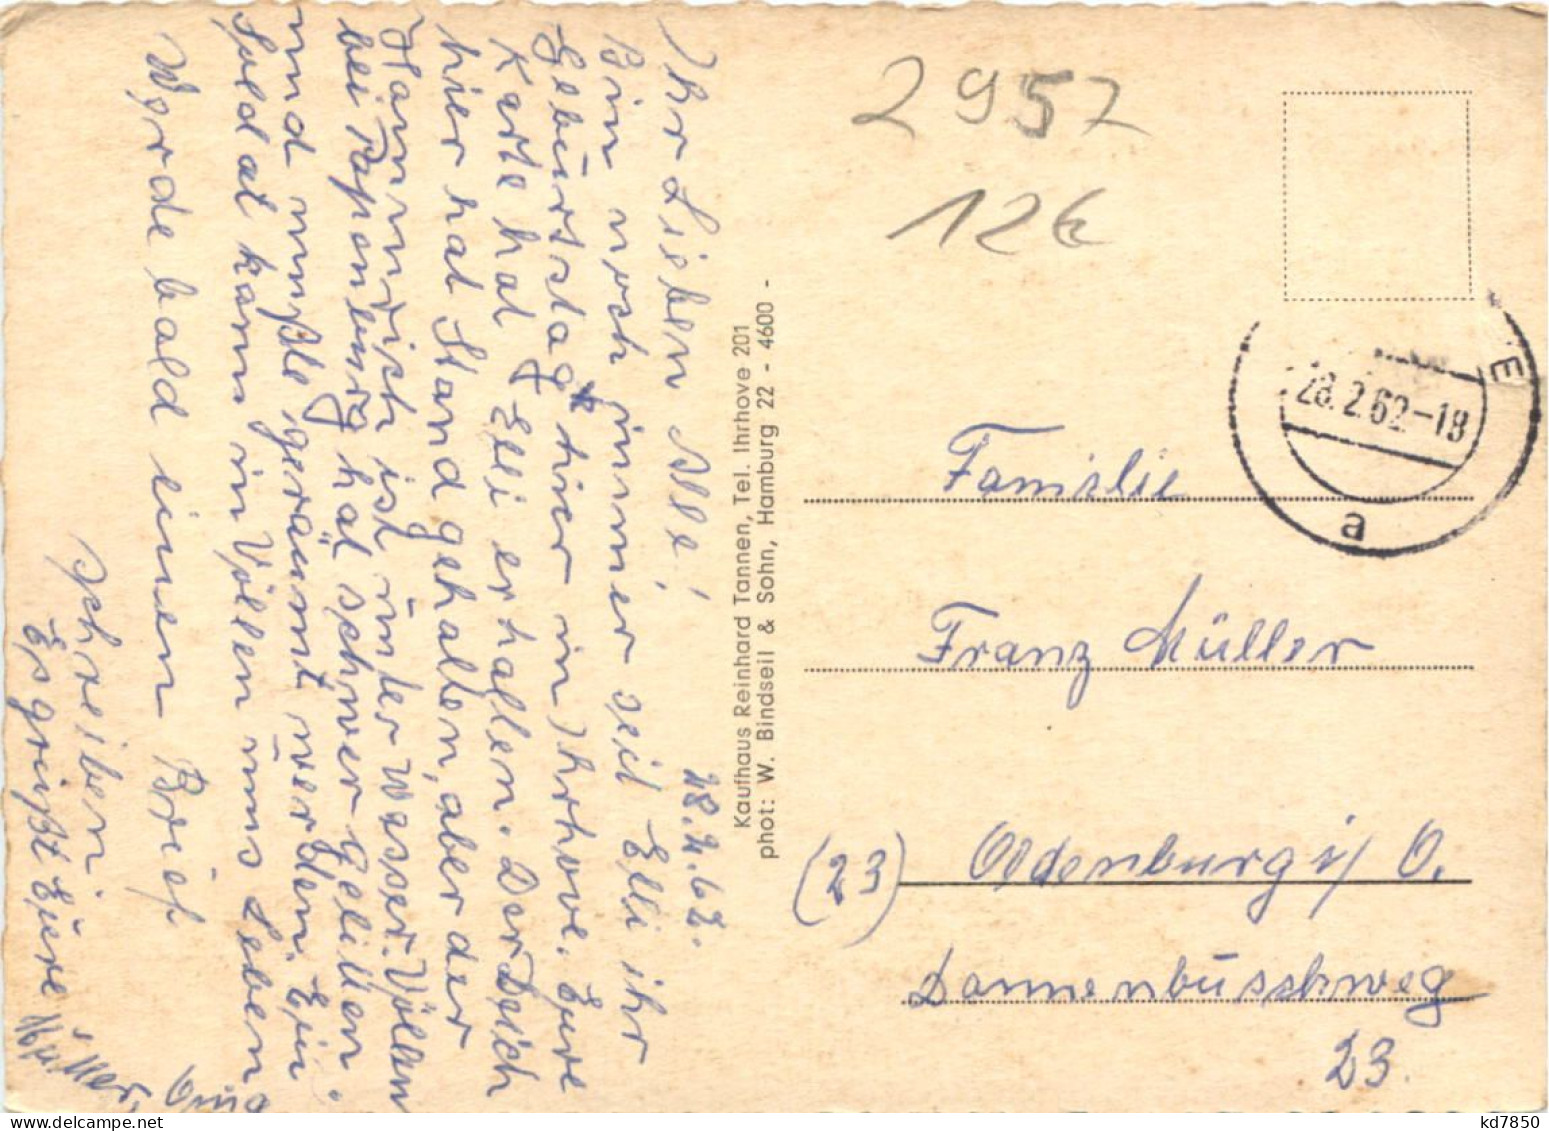 28.2.62.
Ihr Lieben Alle!
Bin noch immer seit Elli ihr
Geburtstag hier in Ihrhove. Eure
Karte hat Elli erhalten. Der Deich
hier hat Stand gehalten, aber der
Hammrich ist unter Wasser. Völlen
bei Papenburg hat schwer gelitten.
und mußte geräumt werden. Ein
Soldat kam in Völlen ums Leben
Werde bald einen Brief
schreiben
Es grüßt Eure
Kaufhaus Reinhard Tannen, Tel. Ihrhove 201
phot: W. Bindseil & Sohn, Hamburg 22 - 4600 -
2957
12€
E
28.2.62-18
a
Familie
Franz Müller
(23) Oldenburg i/O.
Donnerbuschweg
23.
kd7850